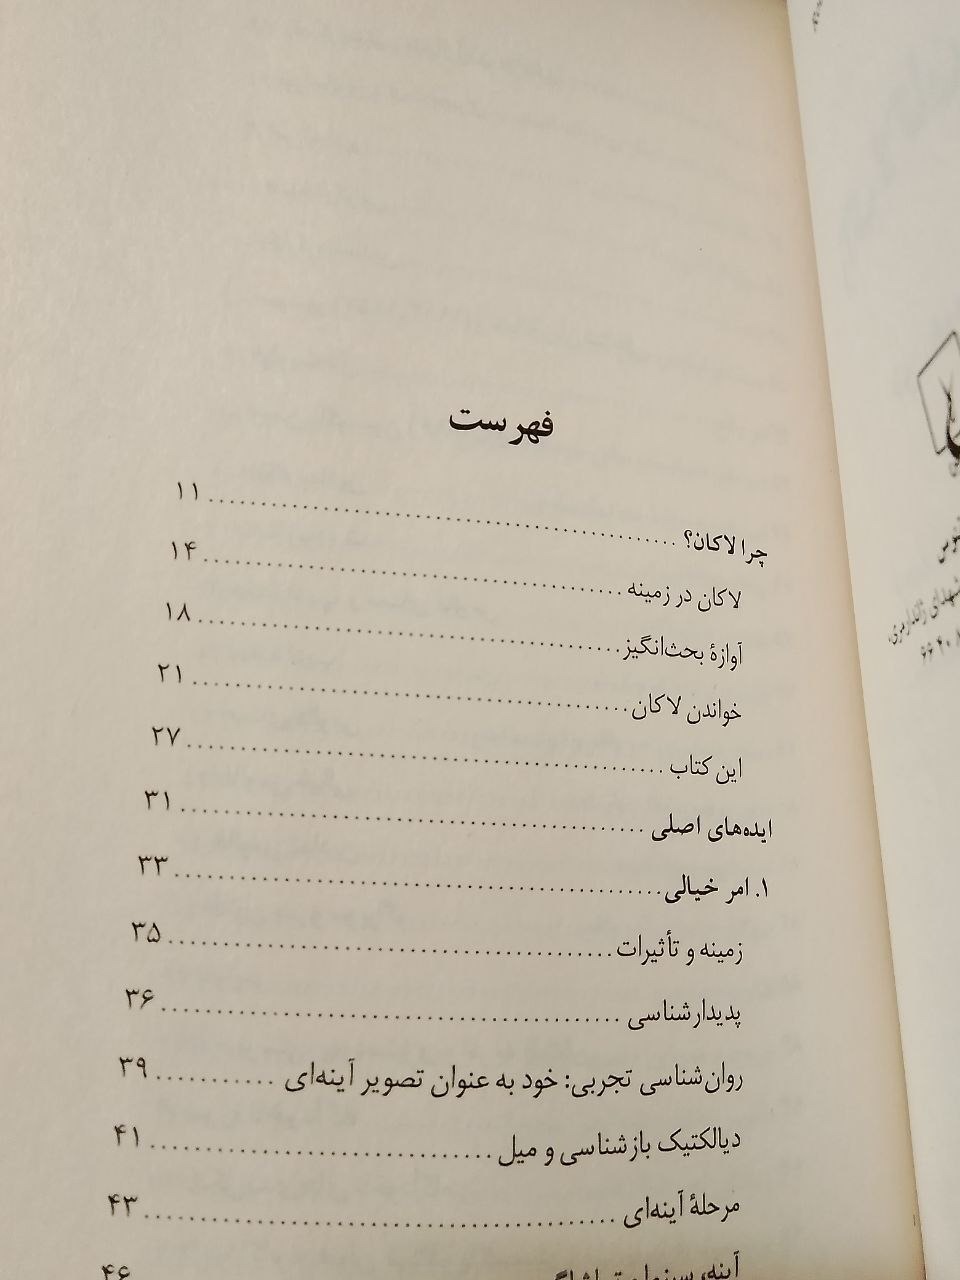 فهرست
چرا لاکان؟ ........ ۱۱
لاکان در زمینه ........ ۱۴
آوازهٔ بحث‌انگیز ........ ۱۸
خواندن لاکان ........ ۲۱
این کتاب ........ ۲۷
ایده‌های اصلی ........ ۳۱
۱. امر خیالی ........ ۳۳
زمینه و تأثیرات ........ ۳۵
پدیدارشناسی ........ ۳۶
روان‌شناسی تجربی: خود به عنوان تصویر آینه‌ای ........ ۳۹
دیالکتیک بازشناسی و میل ........ ۴۱
مرحلهٔ آینه‌ای ........ ۴۳
آینه، سینما و ........ ۴۶
شهدای ژاندارمری،